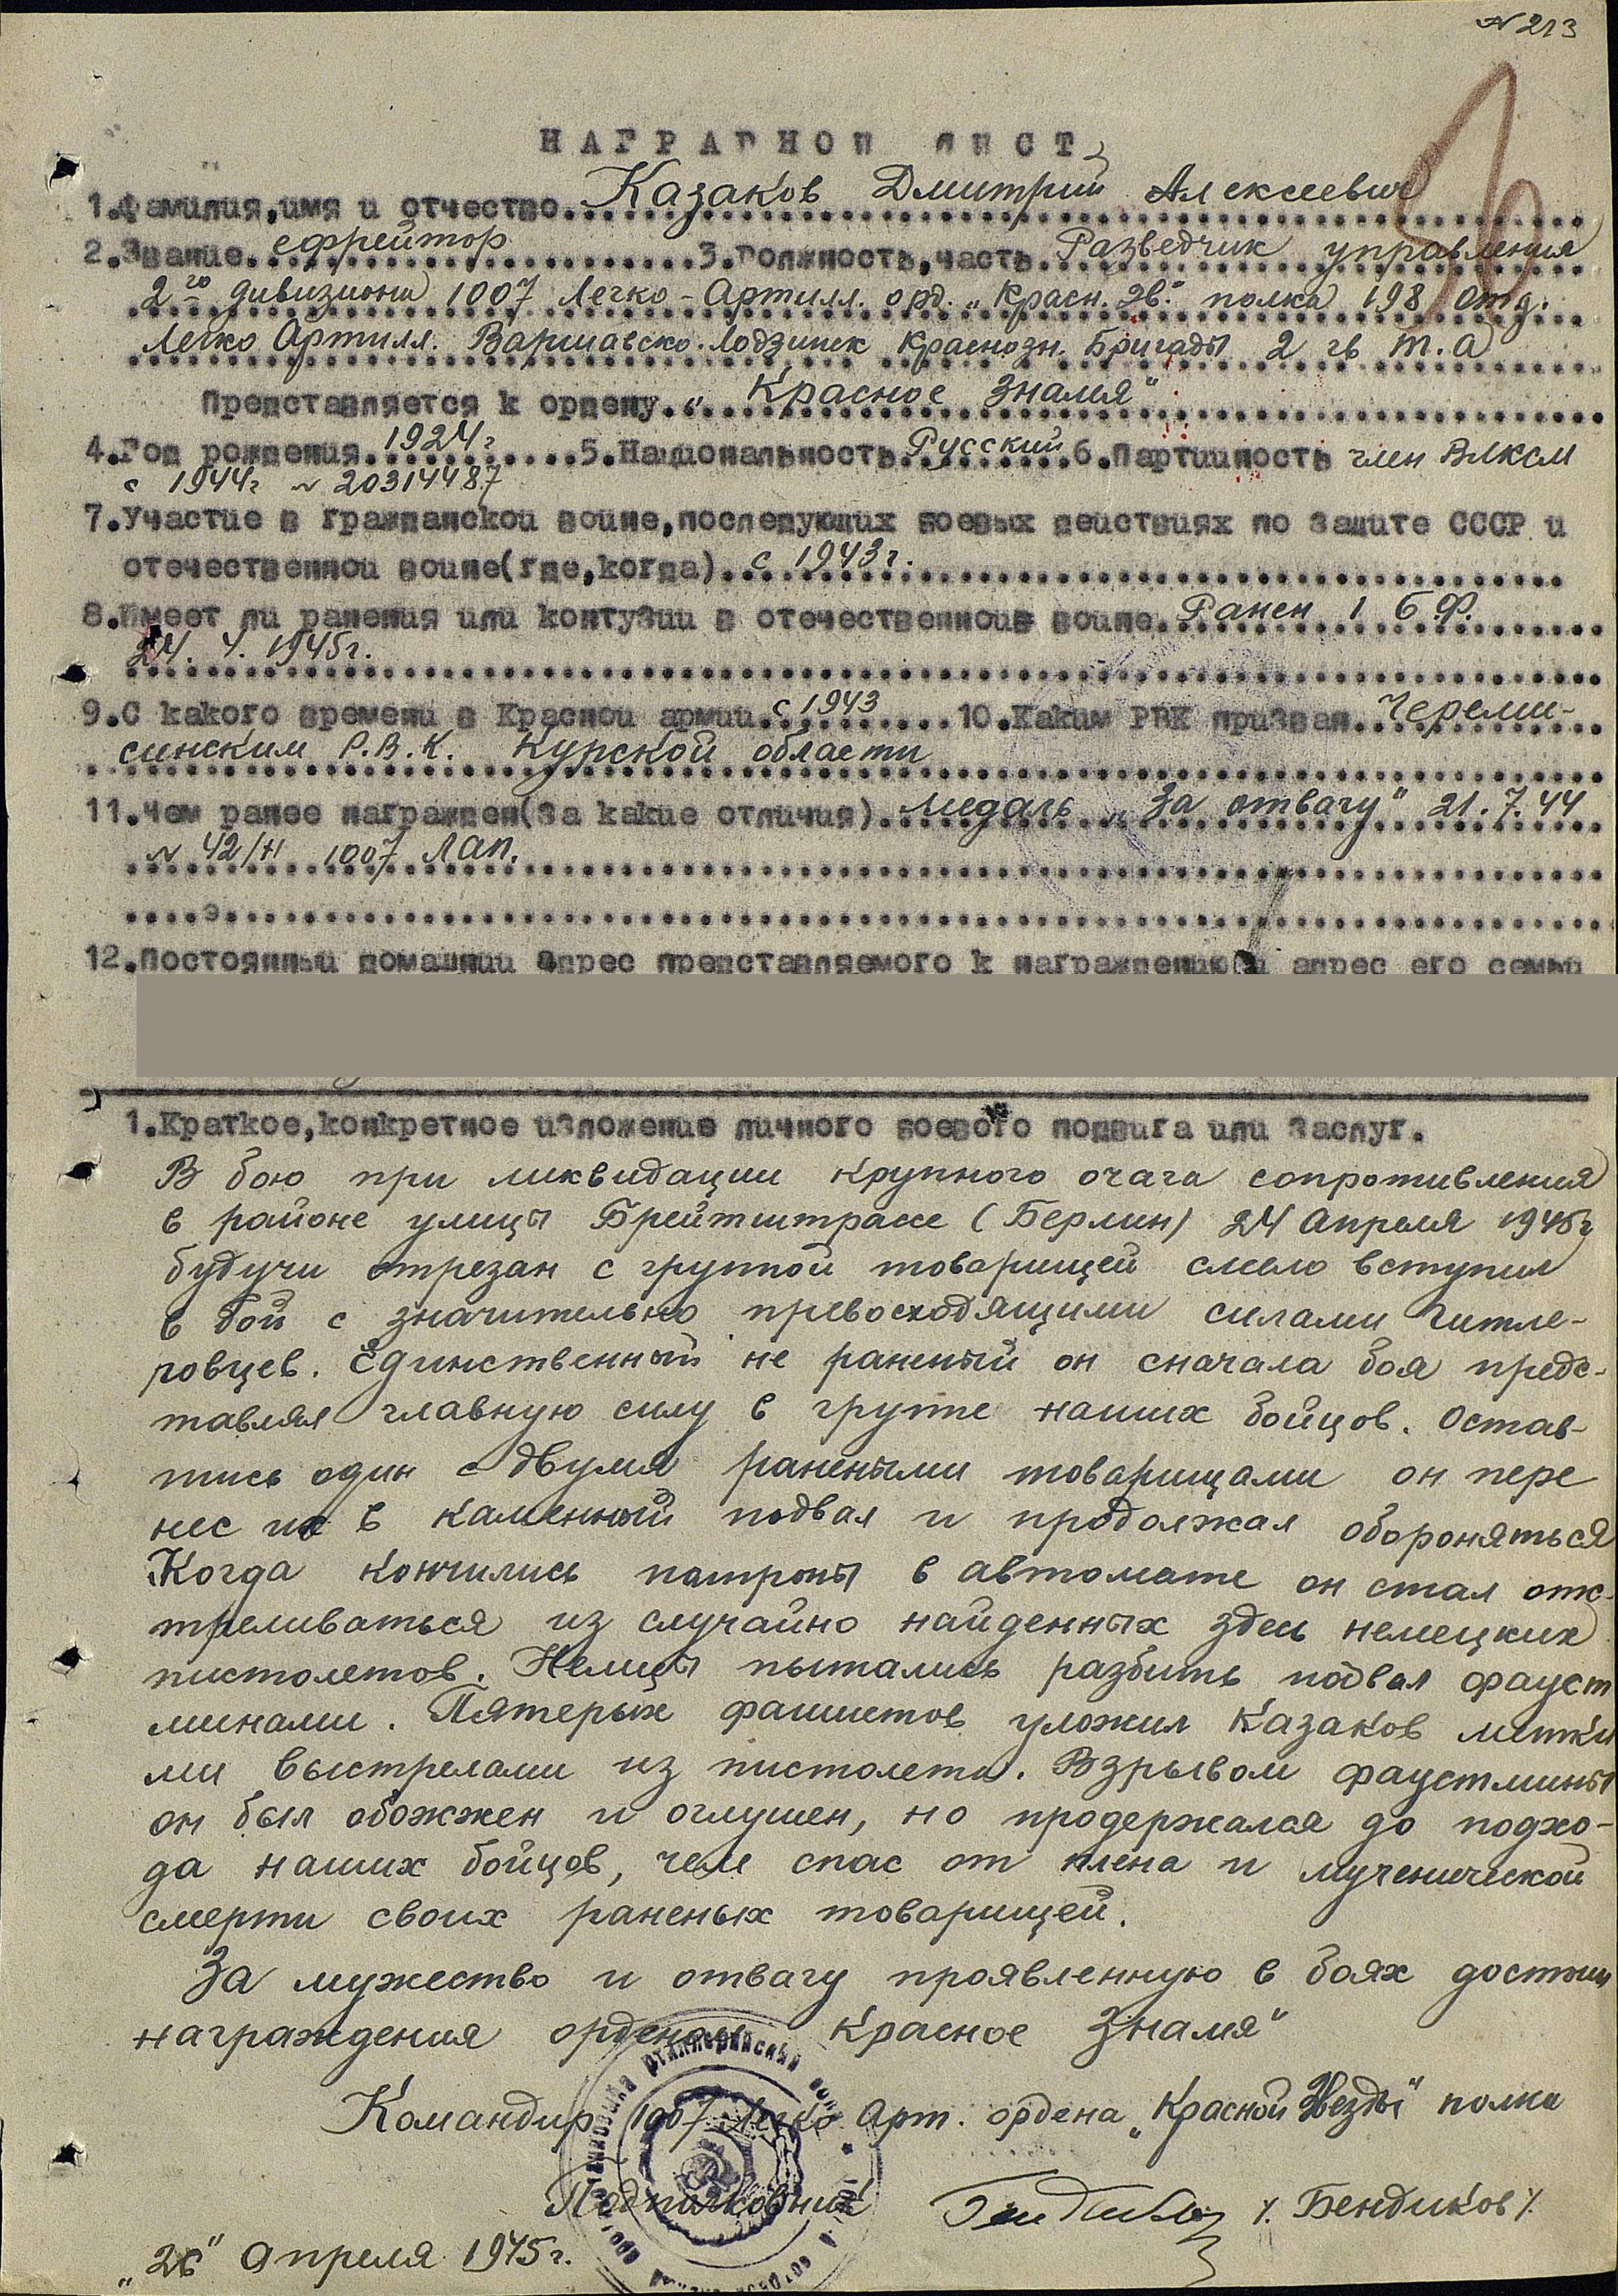 N 213
НАГРАДНОЙ ЛИСТ
1.Фамилия,имя и отчество Казаков Дмитрий Алексеевич
2.Звание ефрейтор 3.Должность,часть Разведчик управления
2го дивизиона 1007 Легко-Артилл. орд. „Красн. Зв." полка 198 отд.
Легко Артилл. Варшавско-Лодзинск Краснозн. Бригады 2 гв Т.А
Представляется к ордену „Красное Знамя"
4.Год рождения 1924г 5.Национальность Русский 6.Партийность член ВЛКСМ
с 1944г N 20314487
7.Участие в гражданской войне,последующих боевых действиях по защите СССР и
отечественной войне(где,когда) с 1943г.
8.Имеет ли ранения или контузии в отечественной войне Ранен 1 Б.Ф.
24. 4. 1945г.
9.С какого времени в Красной армии с 1943 10.Каким РВК призван Череми-
синским Р.В.К. Курской области
11.Чем ранее награжден(За какие отличия) медаль „За отвагу" 21.7.44
N 42/н 1007 ЛАП.
12.Постоянный домашний адрес представляемого к награждению и адрес его семьи
1.Краткое,конкретное изложение личного боевого подвига или заслуг.
В бою при ликвидации крупного очага сопротивления
в районе улицы Брейтштрассе (Берлин) 24 Апреля 1945г
будучи отрезан с группой товарищей смело вступил
в бой с значительно превосходящими силами гитле-
ровцев. Единственный не раненый он сначала боя предс-
тавлял главную силу в группе наших бойцов. Остав-
шись один с двумя ранеными товарищами он пере
нес их в каменный подвал и продолжал обороняться
Когда кончились патроны в автомате он стал отс-
треливаться из случайно найденных здесь немецких
пистолетов. Немцы пытались разбить подвал фауст
минами. Пятерых фашистов уложил Казаков метки
ми выстрелами из пистолета. Взрывом фаустмины
он был обожжен и оглушен, но продержался до подхо-
да наших бойцов, чем спас от плена и мученической
смерти своих раненых товарищей.
За мужество и отвагу проявленную в боях достоин
награждения орденом Красное Знамя"
Командир 1007 Легко Арт. ордена „Красной Звезды" полка
Подполковник /. Бендиков /.
„26" Апреля 1945г.